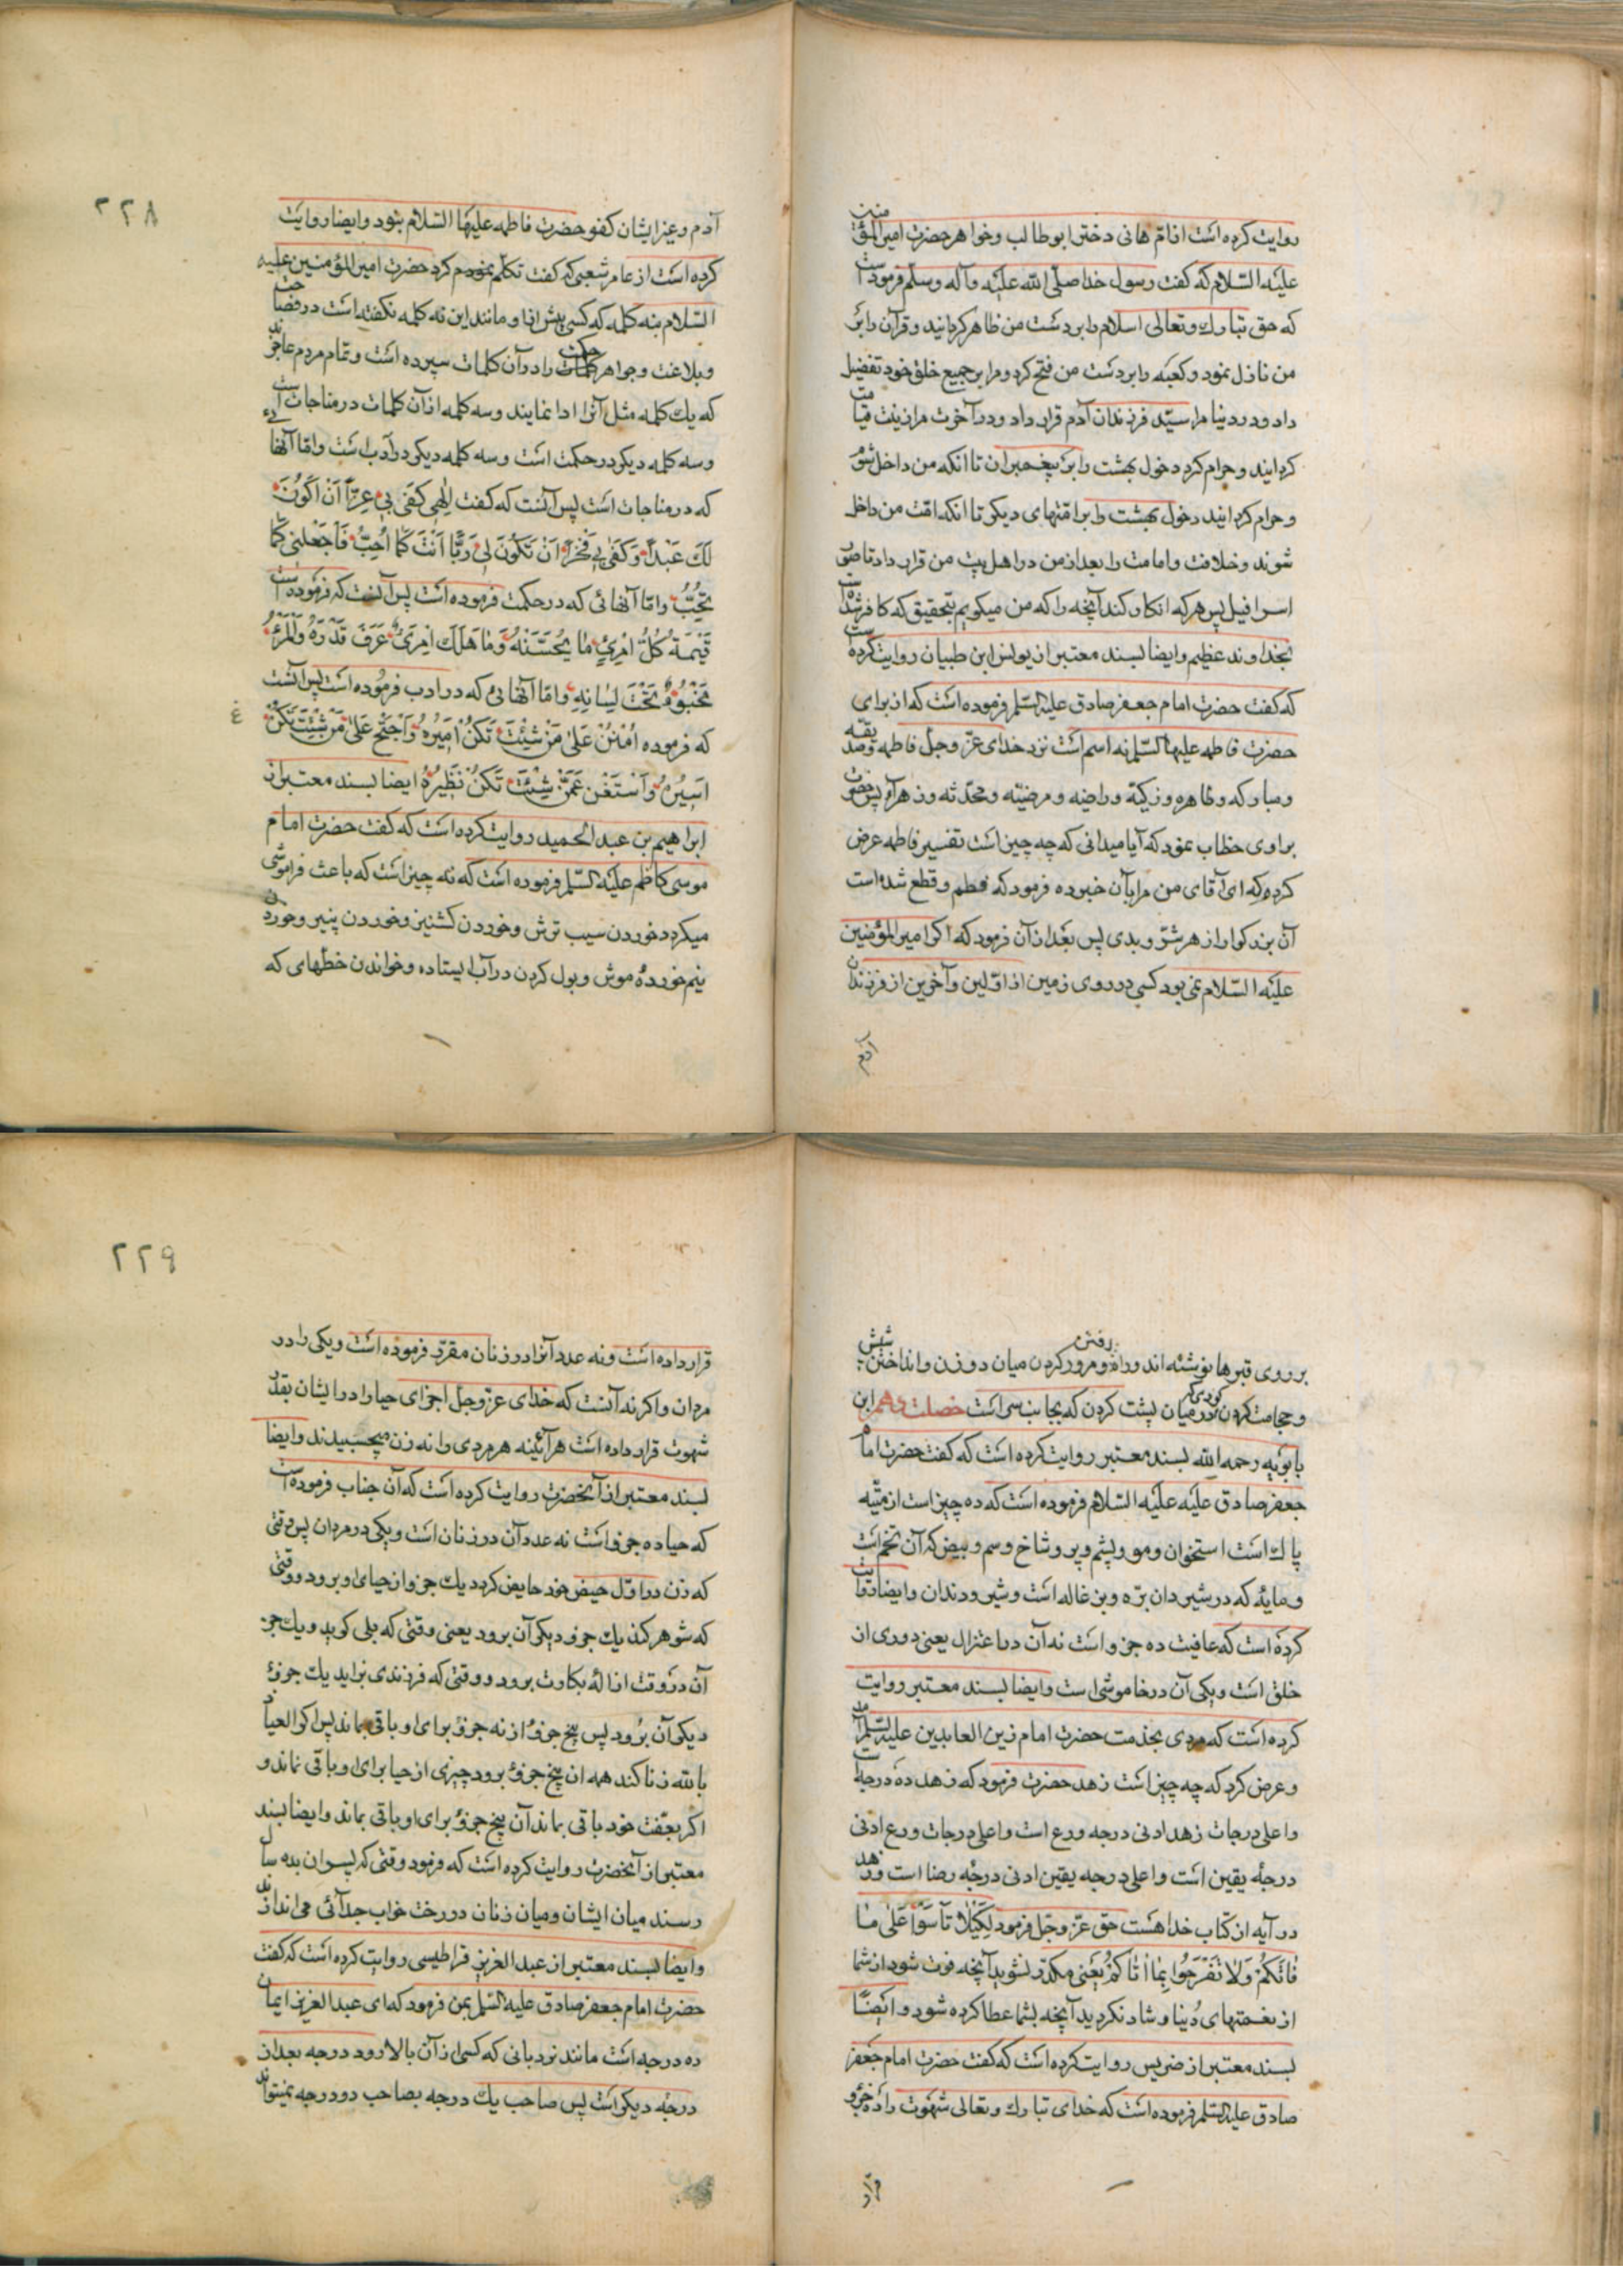 روایت کرده است از امّ هانی دختر ابو طالب و خواهر حضرت امیر المؤمنین
علیه السّلام که گفت رسول خدا صلّی اللّه علیه و آله و سلّم فرموده است
که حق تبارک و تعالی اسلام را بر دست من ظاهر گردانید و قرآن را بر
من نازل نمود و کعبه را بر دست من فتح کرد و مرا بر جمیع خلق خود تفضیل
داد و در دنیا مرا سیّد فرزندان آدم قرار داد و در آخرت مرا زینت قیامت
گردانید و حرام کرد دخول بهشت را بر پیغمبران تا انکه من داخل شوم
و حرام گردانید دخول بهشت را بر امّتهای دیگر تا انکه امّت من داخل
شوند و خلافت و امامت را بعد از من در اهل بیت من قرار داد تا صور
اسرافیل پس هر که انکار کند آنچه را که من میگویم بتحقیق که کافر شده است
بخداوند عظیم و ایضا بسند معتبر از یونس ابن ظبیان روایت کرده است
که گفت حضرت امام جعفر صادق علیه السّلم فرموده است که از برای
حضرت فاطمه علیها السّلم نه اسم است نزد خدای عزّ و جلّ فاطمه و صدیقه
و مبارکه و طاهره و زکیّه و راضیه و مرضیّه و محدّثه و زهرا پس حضرت
براوی خطاب نمود که آیا میدانی که چه چیز است تفسیر فاطمه عرض
کرده که ای آقای من مرا بآن خبر ده فرمود که فطم و قطع شده است
آن بزرگوار از هر شرّ و بدی پس بعد از آن فرمود که اگر امیر المؤمنین
علیه السّلام نمی بود کسی در روی زمین از اوّلین و آخرین از فرزندان
آدم
۲۲۸
آدم و غیر ایشان کفو حضرت فاطمه علیها السّلام نبود و ایضا روایت
کرده است از عامر شعبی که گفت تکلّم کرد حضرت امیر المؤمنین علیه
السّلام بنه کلمه که کسی پیش از او مانند این نه کلمه نگفته است در فصاحت
و بلاغت و جواهر حکمت را در آن کلمات سپرده است و تمام مردم عاجزند
که یک کلمه مثل آنرا ادا نمایند و سه کلمه از آن کلمات در مناجات است
و سه کلمه دیگر در حکمت است و سه کلمه دیگر در آدب است و امّا آنهائی
که در مناجات است پس آنست که گفت اِلٰهی کَفٰی بی عِزّاً اَنْ اَکُونَ
لَکَ عَبْداً وَ کَفٰی بی فَخْراً اَنْ تَکُونَ لی رَبّاً اَنْتَ کَمٰا اُحِبُّ فَاجْعَلْنی کَمٰا
تُحِبُّ و امّا آنهائی که در حکمت فرموده است پس آنست که فرموده است
قیمَةُ کُلُّ امْرِئٍ مٰا یُحْسِنُهُ وَ مٰا هَلَکَ امْرِئٌ عَرَفَ قَدْرَهُ وَ الْمَرْءُ
مَخْبُوءٌ تَحْتَ لِسٰانِهِ و امّا آنهائی که در ادب فرموده است پس آنست
که فرموده اُمْنُنْ عَلیٰ مَنْ شِئْتَ تَکُنْ اَمیرَهُ وَ احْتَجْ عَلیٰ مَنْ شِئْتَ تَکُنْ
اَسیرَهُ وَ اسْتَغْنِ عَمَّنْ شِئْتَ تَکُنْ نَظیرَهُ ایضا بسند معتبر از
ابراهیم بن عبد الحمید روایت کرده است که گفت حضرت امام
موسی کاظم علیه السّلم فرموده است که نه چیز است که باعث فراموشی
میگردد خوردن سیب ترش و خوردن کشنیز و خوردن پنیر و خوردن
نیم خوردهٔ موش و بول کردن در آب ایستاده و خواندن خطّهای که
بر روی قبرها نوشته اند و راه رفتن و مرور کردن میان دو زن و انداختن شپش
و حجامت کردن در گودی میان پشت گردن که بجانب سر است خصلت دهم ابن
بابویه رحمه اللّه بسند معتبر روایت کرده است که گفت حضرت امام
جعفر صادق علیه علیه السّلام فرموده است که ده چیز است از میّته
پاک است استخوان و مو و پشم و پر و شاخ و سم و بیض که آن تخم است
و مایهٔ که در شیردان برّه و بزغاله است و شیر و دندان و ایضا روایت
کرده است که عافیت ده جزو است نه آن در اعتزال یعنی دوری از
خلق است و یکی آن در خاموشی است و ایضا بسند معتبر روایت
کرده است که مردی بخدمت حضرت امام زین العابدین علیه السّلم آمد
و عرض کرد که چه چیز است زهد حضرت فرمود که زهد ده درجه است
و اعلی درجات زهد ادنی درجه ورع است و اعلی درجات ورع ادنی
درجهٔ یقین است و اعلی درجه یقین ادنی درجهٔ رضا است و زهد
در آیه از کتاب خدا هست حق عزّ و جلّ فرمود لِکَیْلاٰ تَأْسَوْا عَلیٰ مٰا
فٰاتَکُمْ وَلاٰ تَفْرَحُوا بِمٰا اٰتٰاکُمْ یعنی مکدّر نشوید آنچه فوت شود از شما
از نعمتهای دُنیا و شاد نگردید آنچه بشما عطا کرده شود و ایضًا
بسند معتبر از ضریس روایت کرده است که گفت حضرت امام جعفر
صادق علیه السّلم فرموده است که خدای تبارک و تعالی شهوت را ده جزو
قرار
۲۲۹
قرار داده است و نه عدد آنرا در زنان مقرّر فرموده است و یکی را در
مردان و اگر نه آنست که خدای عزّ و جلّ اجزای حیا را در ایشان بقدر
شهوت قرار داده است هر آینه هر مردی را نه زن میچسبیدند و ایضا
بسند معتبر از آنحضرت روایت کرده است که آن جناب فرموده است
که حیا ده جزو است نه عدد آن در زنان است و یکی در مردان پس وقتی
که زن در اوّل حیض خود حایض گردد یک جزو از حیای او برود و وقتی
که شوهر کند یک جزو دیگر آن برود یعنی وقتی که بلی گوید و یک جزو
آن در وقت ازالهٔ بکارت برود و وقتی که فرزندی بزاید یک جزؤ
دیگر آن برود پس پنج جزؤ از نه جزؤ برای او باقی بماند پس اگر العیاذ
باللّه زنا کند همه ان پنج جزؤ برود چیزی از حیا برای او باقی نماند و
اگر بعفّت خود باقی بماند آن پنج جزؤ برای او باقی بماند و ایضا بسند
معتبر از آنحضرت روایت کرده است که فرمود وقتی که پسران بده سال
رسند میان ایشان و میان زنان در رخت خواب جدائی می اندازند
و ایضا بسند معتبر از عبد العزیز قراطیسی روایت کرده است که گفت
حضرت امام جعفر صادق علیه السّلم بمن فرمود که ای عبد العزیز ایمان
ده درجه است مانند نردبانی که کسی از آن بالا رود درجه بعد از
درجهٔ دیگر است پس صاحب یک درجه بصاحب دو درجه نمیتواند